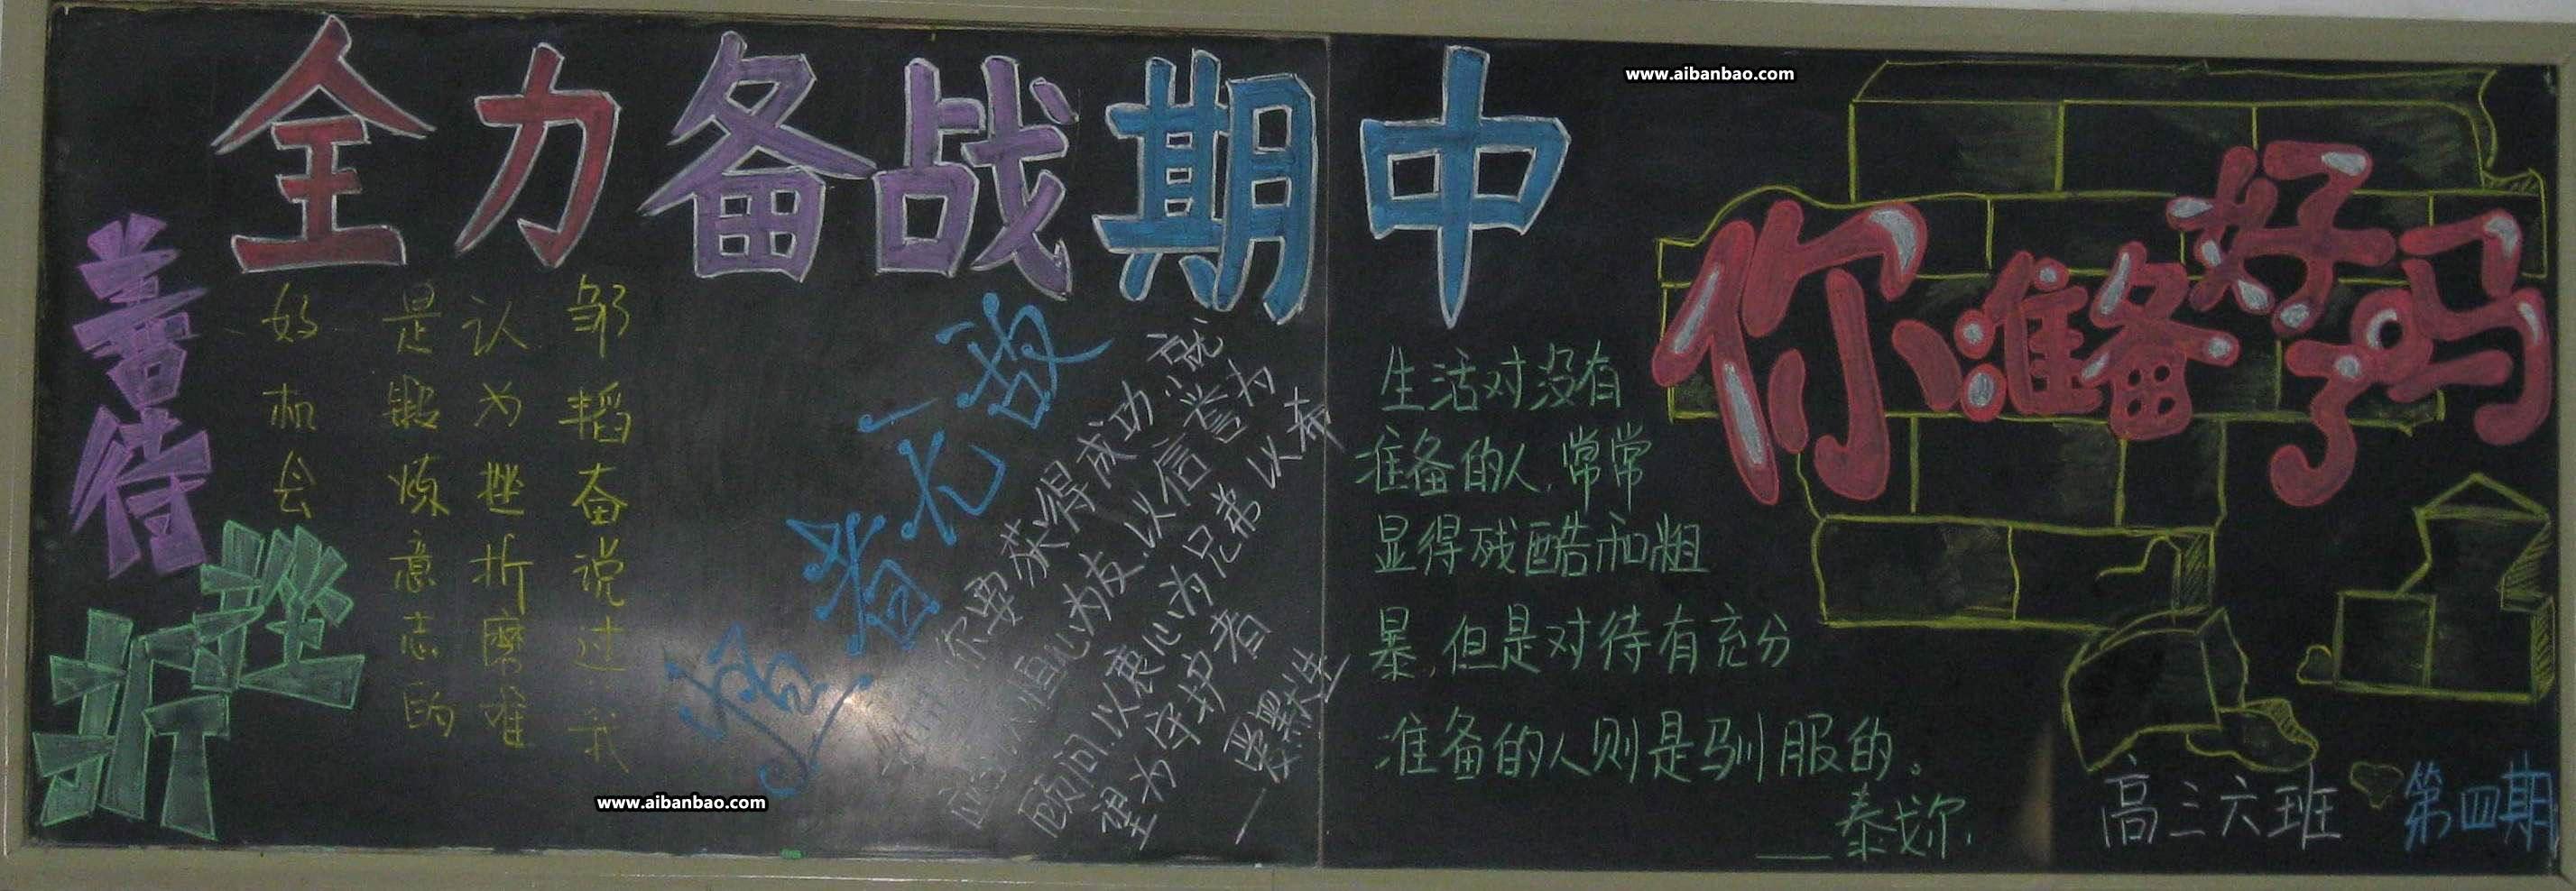 全力备战期中
www.aibanbao.com
你准备好了吗
善待
挫折
邹韬奋说过我
认为挫折磨难
是锻炼意志的
好机会
者无敌
你要获得成功就
恒心为友,以信誉为
顾问,以衷心为兄弟以希
望为守护者
—爱默生
生活对没有
准备的人,常常
显得残酷和粗
暴,但是对待有充分
准备的人则是驯服的。
——泰戈尔
www.aibanbao.com
高三六班
第四期